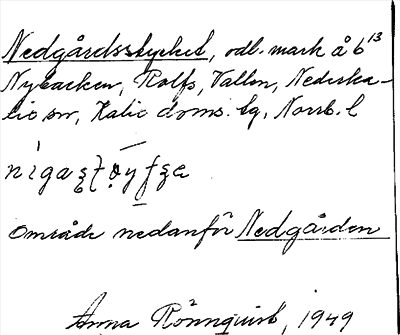 Nedgårdsstycket, odl. mark å 6¹³
Nybacken, Rolfs, Vallen, Nederka-
lix sn, Kalix doms. lg, Norrb. l
område nedanför Nedgården
Anna Rönnquist, 1949